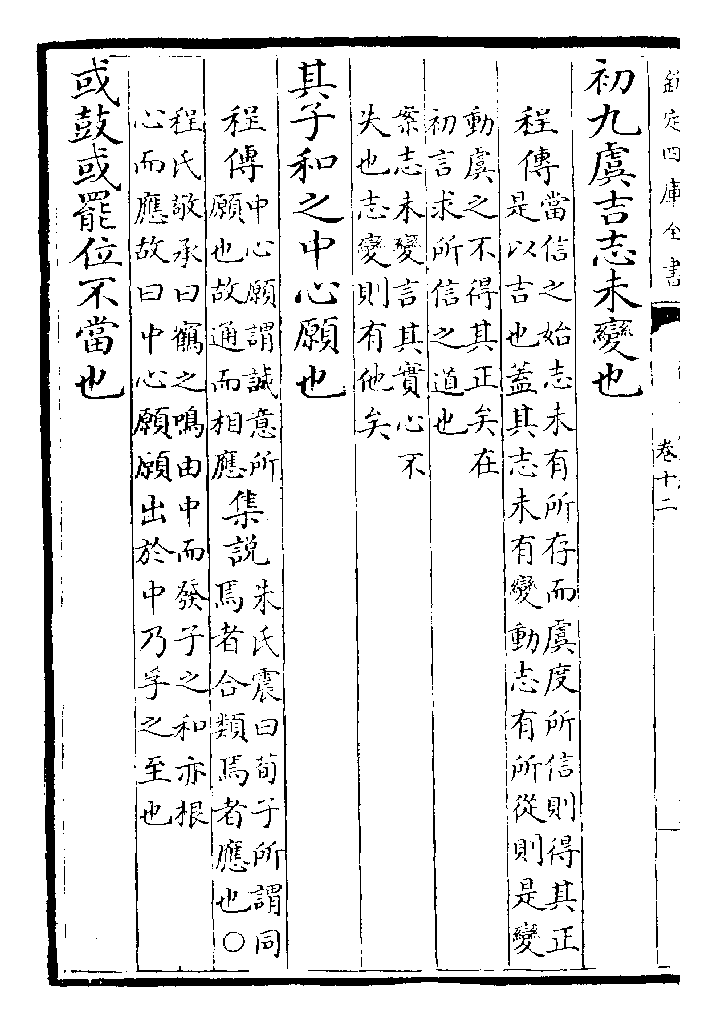 欽定四庫全書
卷十二
初九虞吉志未變也
程傳當信之始志未有所存而虞度所信則得其正
是以吉也蓋其志未有變動志有所從則是變
動虞之不得其正矣在
初言求所信之道也
案志未變言其實心不
失也志變則有他矣
其子和之中心願也
程傳中心願謂誠意所
願也故通而相應
集說朱氏震曰荀子所謂同
焉者合類焉者應也○
程氏敬承曰鶴之鳴由中而發子之和亦根
心而應故曰中心願願出於中乃孚之至也
或鼓或罷位不當也